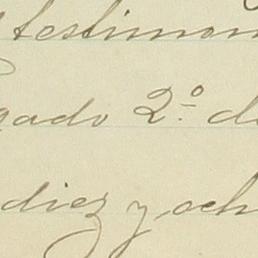 testimon
gado 2º de
diez y och